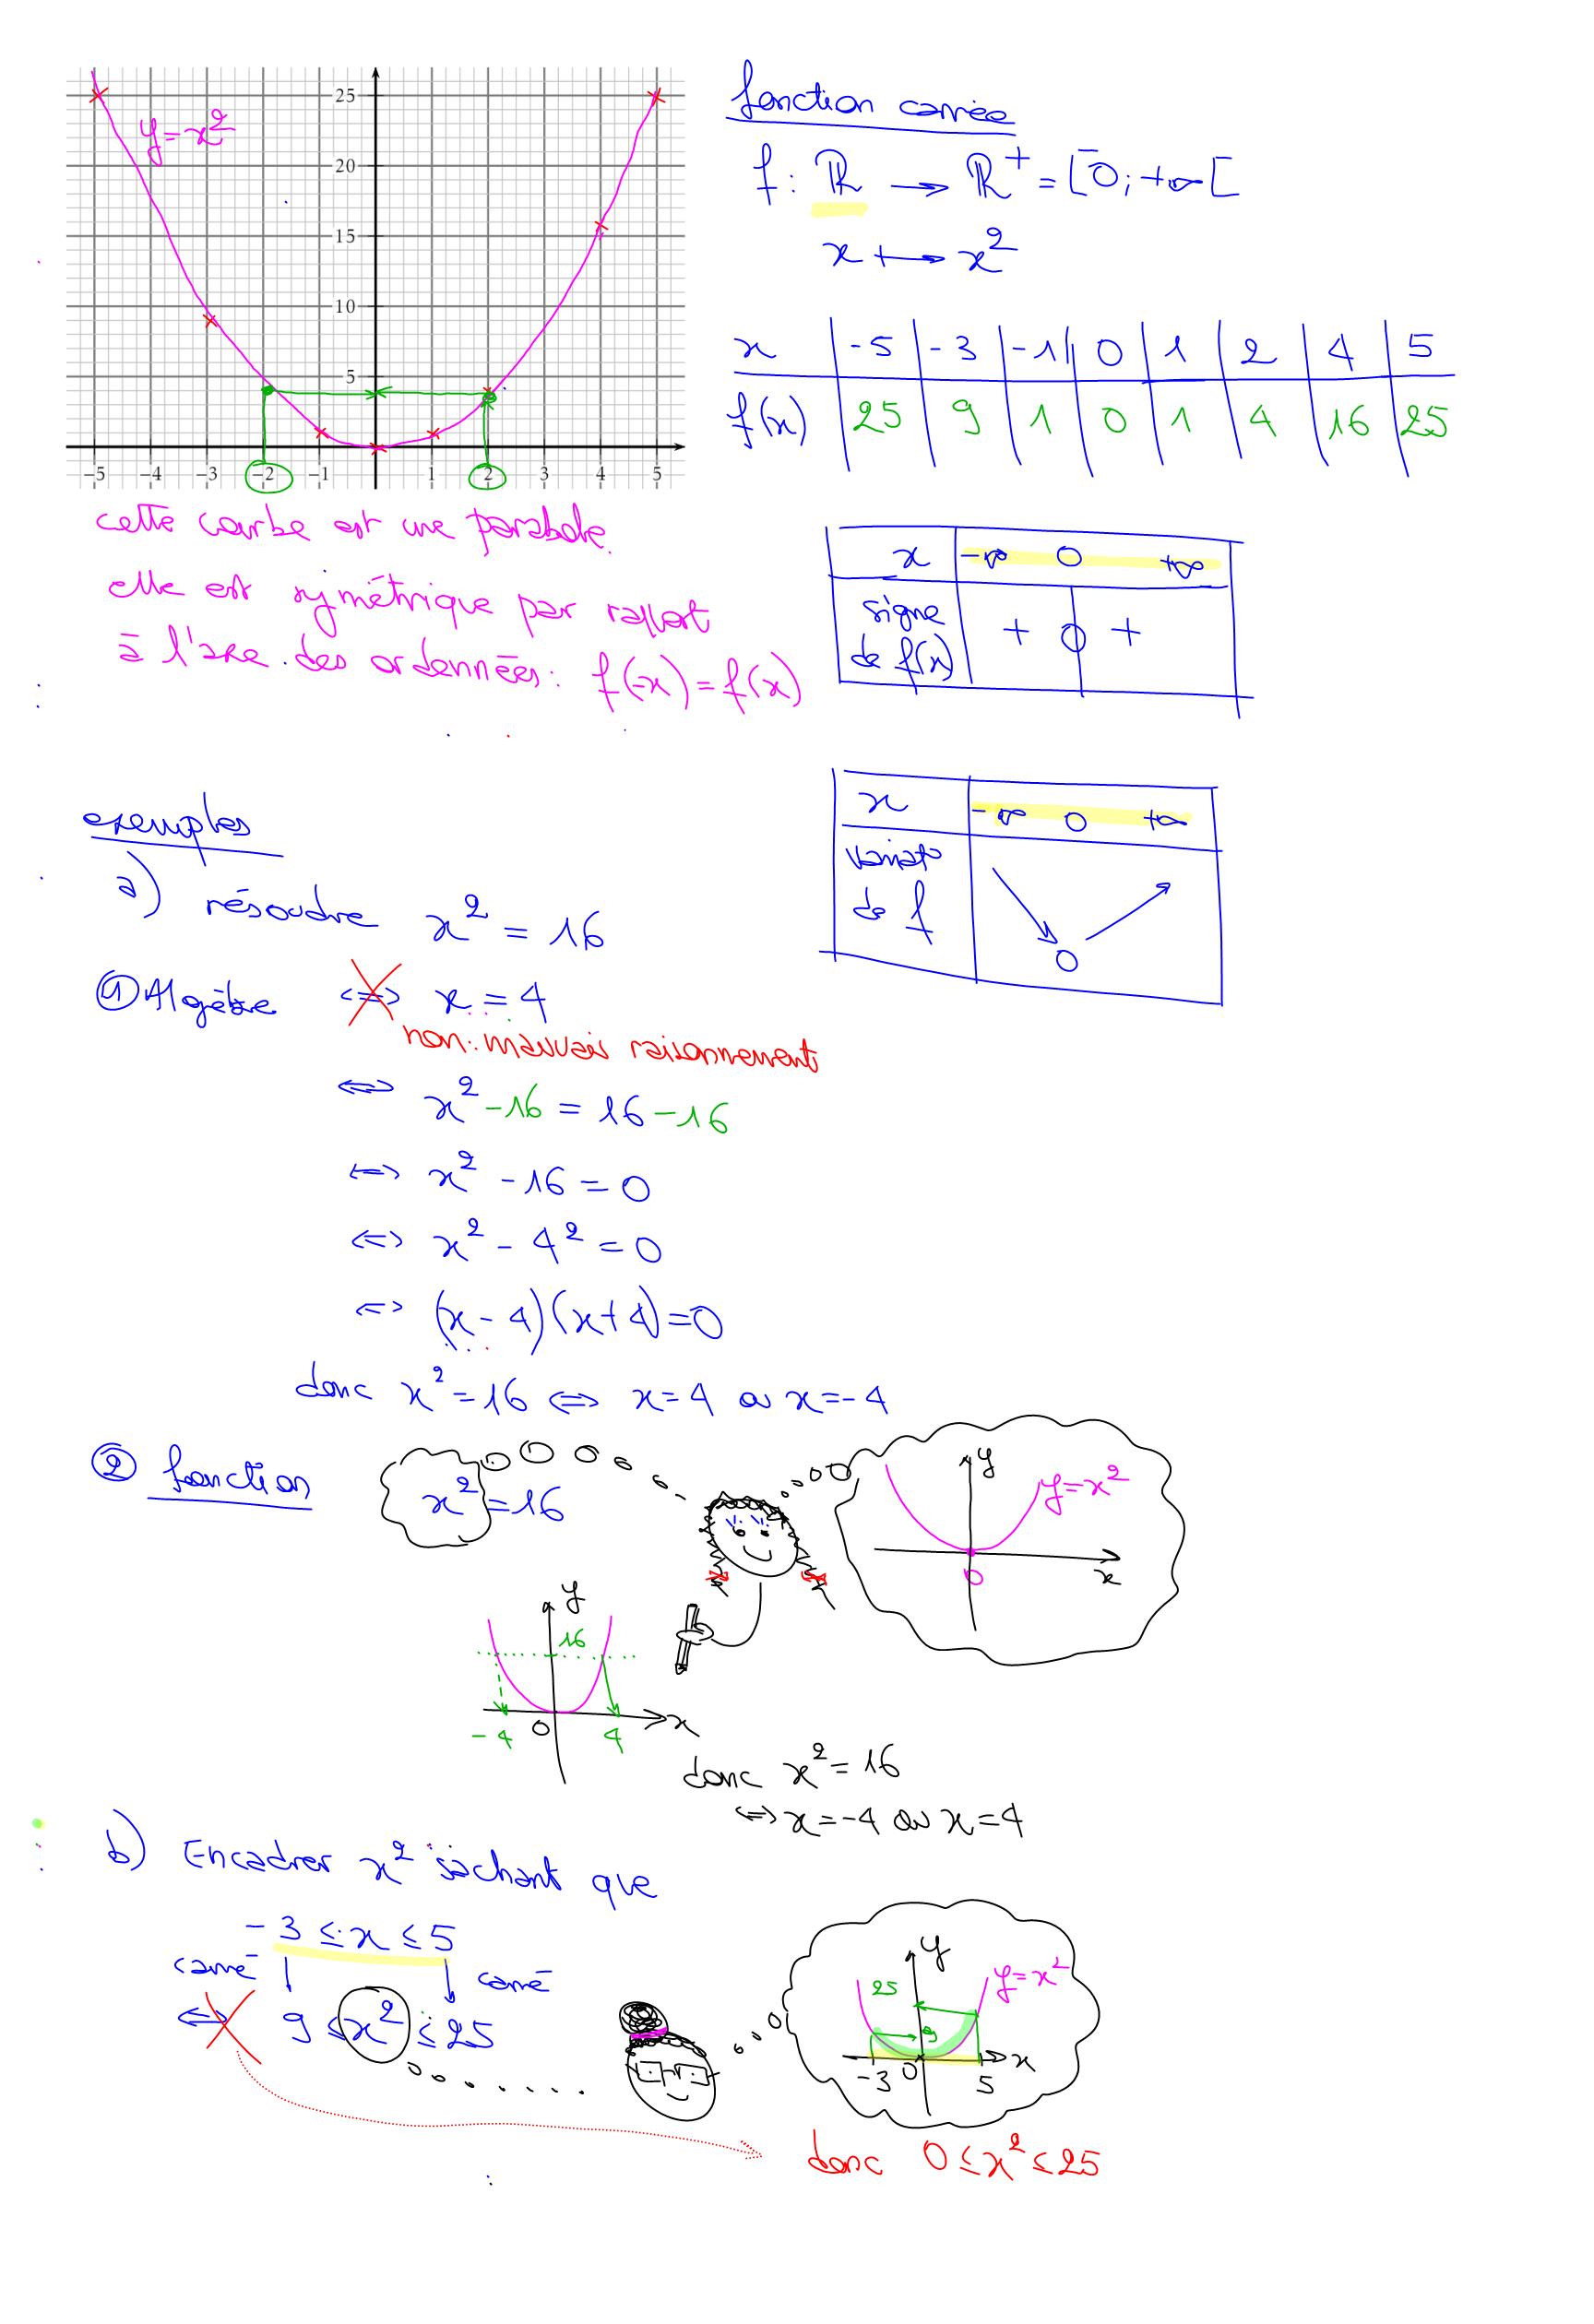 fonction carrée
f: ℝ ⟶ ℝ⁺ = [0; +∞[
x ⟼ x²
y = x²
25
20
15
10
5
-5 -4 -3 -2 -1 1 2 3 4 5
x | -5 | -3 | -1 | 0 | 1 | 2 | 4 | 5
f(x) | 25 | 9 | 1 | 0 | 1 | 4 | 16 | 25
cette courbe est une parabole.
elle est symétrique par rapport
à l'axe des ordonnées: f(-x) = f(x)
x | -∞ 0 +∞
signe de f(x) | + 0 +
x | -∞ 0 +∞
variat° de f
0
exemples
a) résoudre x² = 16
① Algèbre ⟺ x = 4
non: mauvais raisonnement
⟺ x² - 16 = 16 - 16
⟺ x² - 16 = 0
⟺ x² - 4² = 0
⟺ (x - 4)(x + 4) = 0
donc x² = 16 ⟺ x = 4 ou x = -4
② fonction x² = 16
y
y = x²
0
x
y
16
-4 0 4 x
donc x² = 16
⟺ x = -4 ou x = 4
b) Encadrer x² sachant que
-3 ≤ x ≤ 5
carré carré
⟺ 9 ≤ x² ≤ 25
y
25 y = x²
9
-3 0 5 x
donc 0 ≤ x² ≤ 25